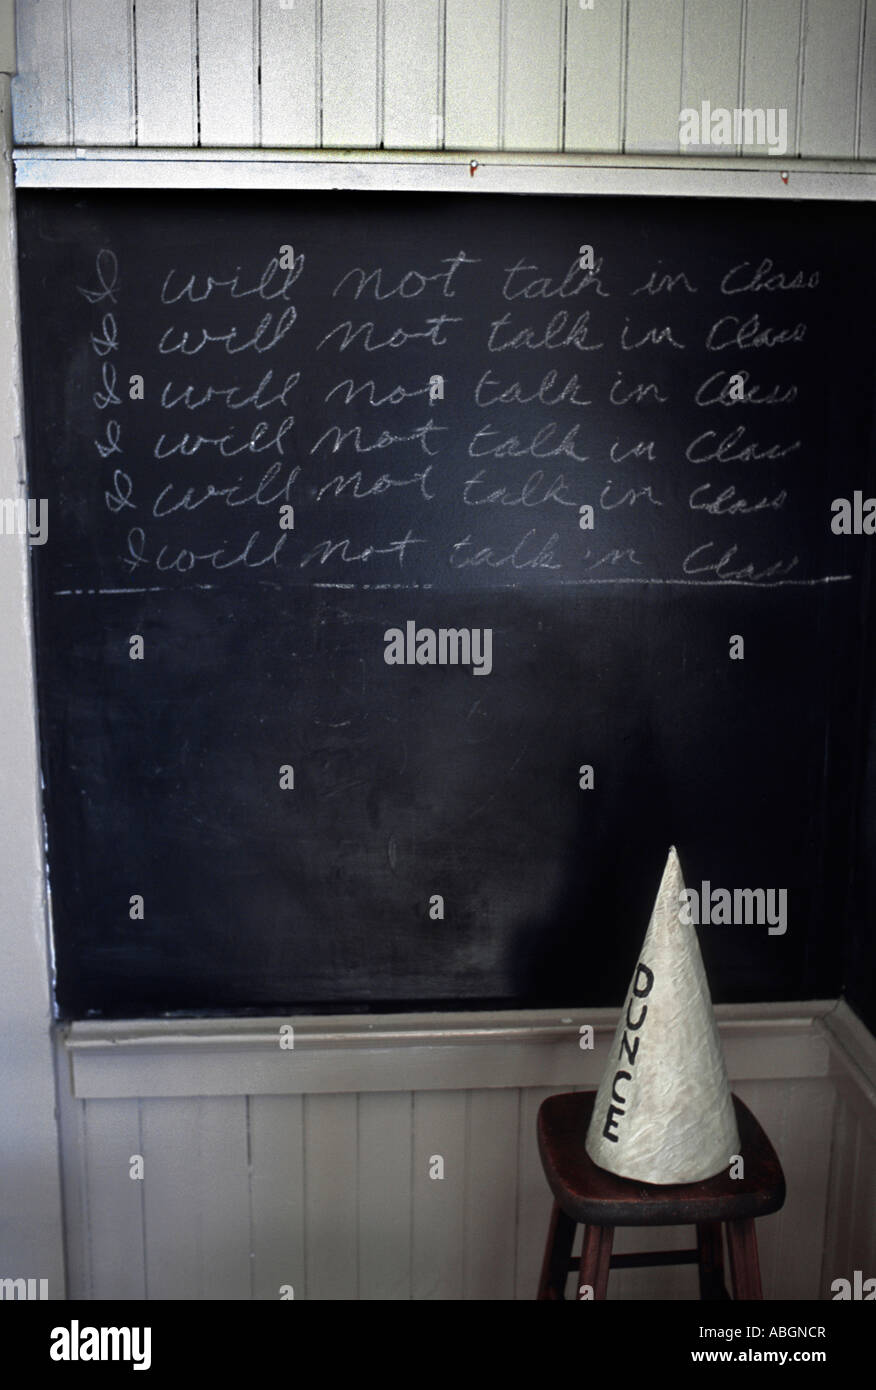 I will not talk in Class
I will not talk in Class
I will not talk in Class
I will not talk in Class
I will not talk in Class
I will not talk in Class
DUNCE
alamy
alamy
alamy
alamy
Image ID: ABGNCR
www.alamy.com